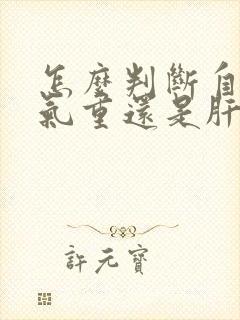 怎麼判斷自
氣重還是肝
許元寶